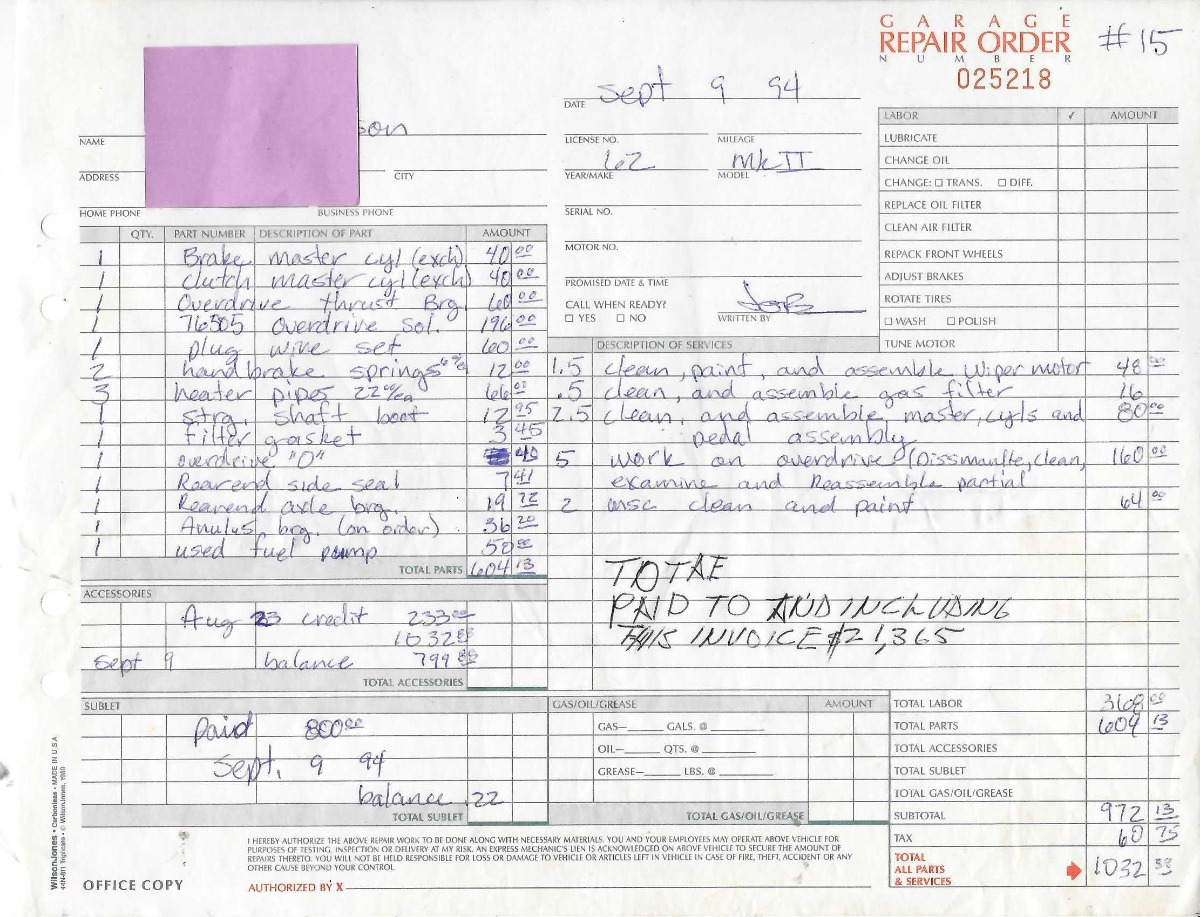 GARAGE
REPAIR ORDER
NUMBER
025218
#15
DATE Sept 9 94
son
NAME
ADDRESS
CITY
HOME PHONE
BUSINESS PHONE
LICENSE NO.
MILEAGE
62 mkII
YEAR/MAKE
MODEL
SERIAL NO.
MOTOR NO.
PROMISED DATE & TIME
CALL WHEN READY?
☐ YES ☐ NO
WRITTEN BY
LABOR ✓ AMOUNT
LUBRICATE
CHANGE OIL
CHANGE: ☐ TRANS. ☐ DIFF.
REPLACE OIL FILTER
CLEAN AIR FILTER
REPACK FRONT WHEELS
ADJUST BRAKES
ROTATE TIRES
☐ WASH ☐ POLISH
TUNE MOTOR
QTY. PART NUMBER DESCRIPTION OF PART AMOUNT
1 Brake master cyl (exch) 40 00
1 clutch master cyl (exch) 40 00
1 Overdrive thrust Brg. 60 00
1 76505 overdrive Sol. 196 00
1 plug wire set 60 00
2 handbrake springs 12 00
3 heater pipes 22 00/ea 66 00
1 strg. shaft boot 12 95
1 filter gasket 3 45
1 overdrive "O" 40
1 Rearend side seal 7 41
1 Rearend axle brg. 19 72
1 Anulus brg. (on order) 36 20
1 used fuel pump 50 00
TOTAL PARTS 604 13
DESCRIPTION OF SERVICES
1.5 clean, paint, and assemble Wiper motor 48 00
.5 clean, and assemble gas filter 16
2.5 clean, and assemble master, cyls and 80 00
pedal assembly
5 work on overdrive (Dissmanlte, clean, 160 00
examine and Reassemble partial
2 msc clean and paint 64 00
TOTAE
PAID TO AND INCLUDING
THIS INVOICE $21,365
ACCESSORIES
Aug 23 credit 233 00
1032 88
Sept 9 balance 799 88
TOTAL ACCESSORIES
SUBLET
paid 800 00
Sept. 9 94
balance .22
TOTAL SUBLET
GAS/OIL/GREASE AMOUNT
GAS— GALS. @
OIL— QTS. @
GREASE— LBS. @
TOTAL GAS/OIL/GREASE
TOTAL LABOR 368 00
TOTAL PARTS 604 13
TOTAL ACCESSORIES
TOTAL SUBLET
TOTAL GAS/OIL/GREASE
SUBTOTAL 972 13
TAX 60 75
TOTAL
ALL PARTS
& SERVICES
1032 88
I HEREBY AUTHORIZE THE ABOVE REPAIR WORK TO BE DONE ALONG WITH NECESSARY MATERIALS. YOU AND YOUR EMPLOYEES MAY OPERATE ABOVE VEHICLE FOR
PURPOSES OF TESTING, INSPECTION OR DELIVERY AT MY RISK. AN EXPRESS MECHANIC'S LIEN IS ACKNOWLEDGED ON ABOVE VEHICLE TO SECURE THE AMOUNT OF
REPAIRS THERETO. YOU WILL NOT BE HELD RESPONSIBLE FOR LOSS OR DAMAGE TO VEHICLE OR ARTICLES LEFT IN VEHICLE IN CASE OF FIRE, THEFT, ACCIDENT OR ANY
OTHER CAUSE BEYOND YOUR CONTROL.
OFFICE COPY
AUTHORIZED BY X
WilsonJones • Carbonless • MADE IN U.S.A.
44N-811 Triplicate • © WilsonJones, 1989